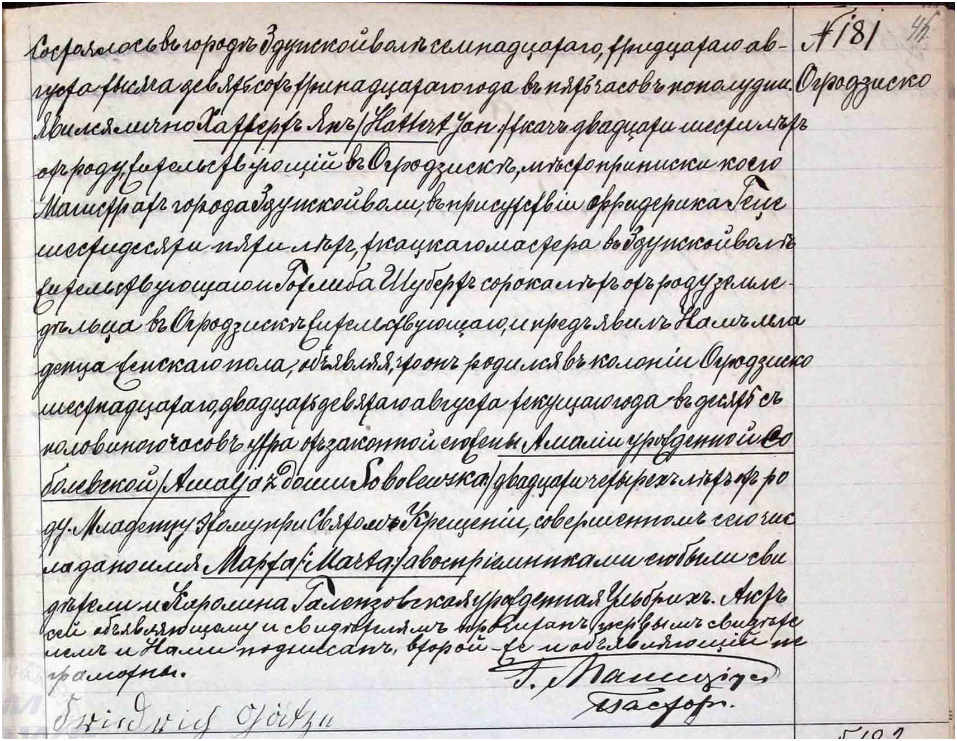 № 181
45
Огродзиско
Состоялось въ городѣ Здунской волѣ семнадцатаго, тридцатаго ав-
густа тысяча девятьсотъ тринадцатаго года въ пять часовъ пополудни.
Явился лично Хаттертъ Янъ /Hattert Jan:/ ткачъ двадцати шести лѣтъ
отъ роду жительствующій въ Огродзискѣ, мѣсто приписки коего
Магистратъ города Здунской воли, въ присутствіи Фридерика Геце
шестидесяти пяти лѣтъ, ткацкаго мастера въ Здунской волѣ
жительствующаго и Готлиба Шубертъ сорока лѣтъ отъ роду земле-
дѣльца въ Огродзискѣ жительствующаго, и предъявилъ Намъ мла
денца женскаго пола, объявляя, что онъ родился въ колоніи Огродзиско
шестнадцатаго, двадцать девятаго августа текущаго года въ десять съ
половиною часовъ утра отъ законной его жены Амаліи урожденной Со
болевской /Amalja z domu Sobolewska:/ двадцати четырехъ лѣтъ отъ ро
ду. Младенцу этому при Святомъ Крещеніи, совершенномъ сего чис
ла дано имя Марта /:Marta:/ а воспріемниками его были сви
дѣтели и Каролина Галензовская урожденная Ульбрихъ. Актъ
сей объявляющему и свидѣтелямъ прочитанъ, первымъ свидѣте
лемъ и Нами подписанъ, второй-же и объявляющій не
грамотны.
Пасторъ.
Friedrich Götze